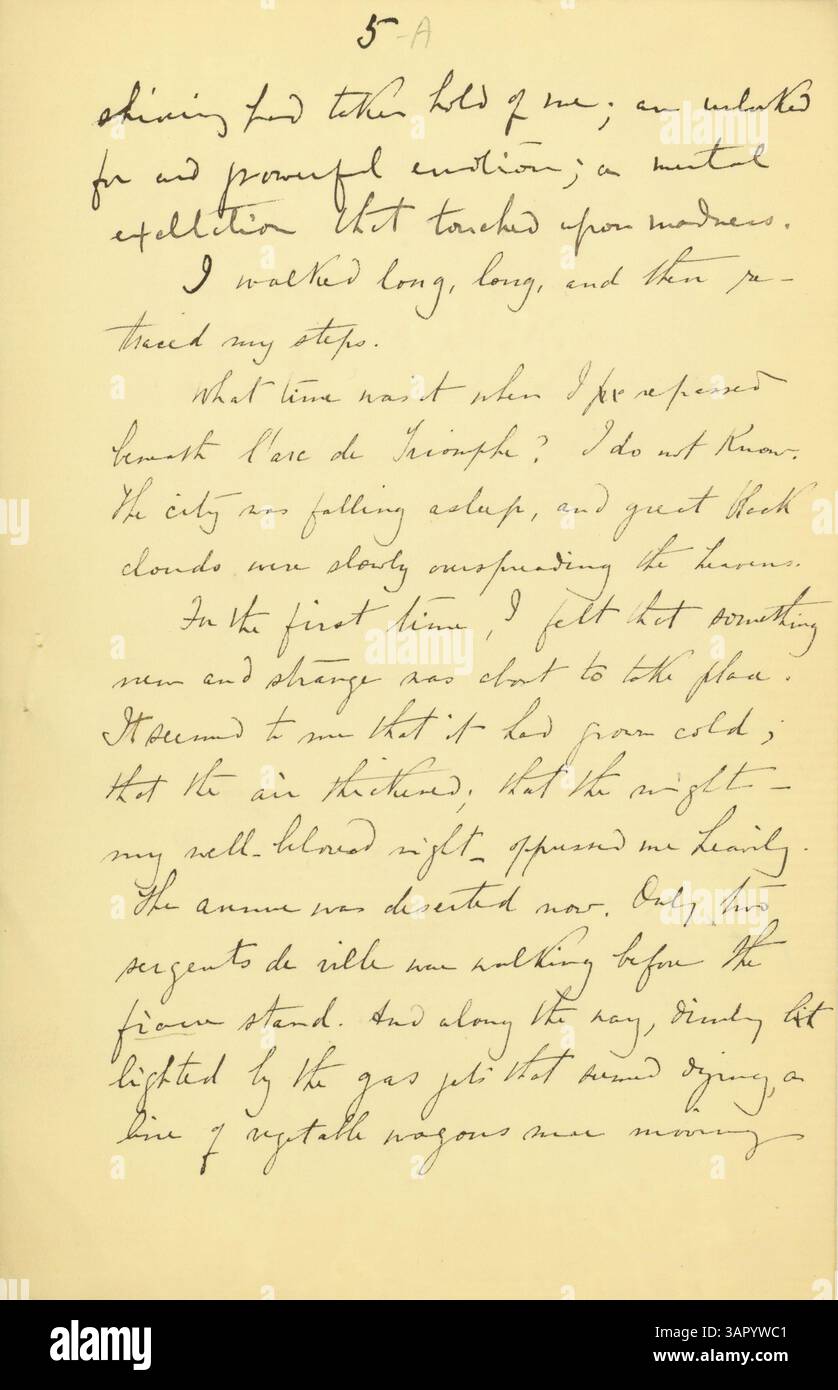 5-A
shivering had taken hold of me; an unlooked
for and powerful emotion; a mental
exaltation that touched upon madness.
I walked long, long, and then re-
traced my steps.
What time was it when I repassed
beneath l'arc de Triomphe? I do not know.
The city was falling asleep, and great black
clouds were slowly overspreading the heavens.
For the first time, I felt that something
new and strange was about to take place.
It seemed to me that it had grown cold;
that the air thickened; that the night-
my well-beloved night- oppressed me heavily.
The avenue was deserted now. Only two
sergents de ville were walking before the
fiacre stand. And along the way, dimly lit
lighted by the gas jets that seemed dying, a
line of vegetable wagons were moving
alamy
alamy
alamy
alamy
alamy
Image ID: 3APYWC1
www.alamy.com